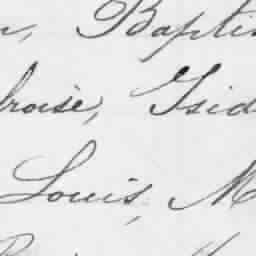 Bapti
broise, Isid
Louis, M